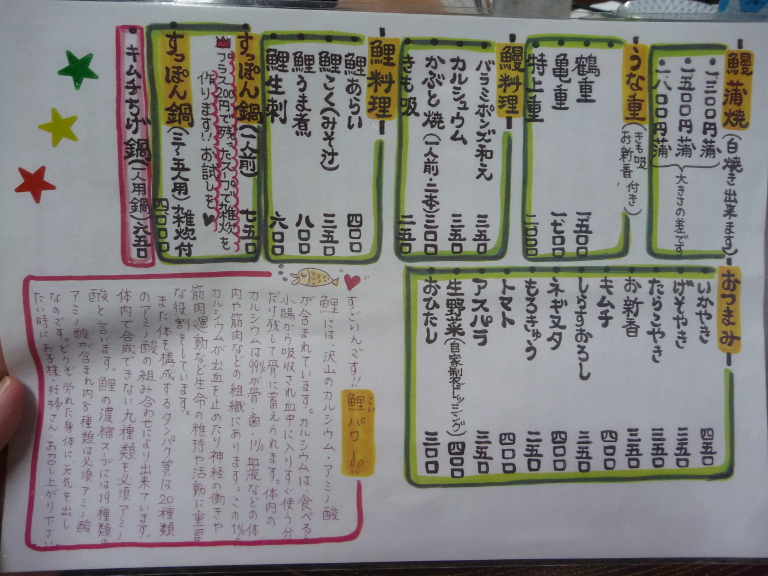 鰻蒲焼(白焼き出来ます)
・一三〇〇円蒲
・一五〇〇円蒲
・一八〇〇円蒲
大きさの差です
うな重(きも吸 お新香 付き)
鶴重 一五〇〇
亀重 一七〇〇
特上重 二〇〇〇
鰻料理
バラミポンズ和え 三五〇
カルシュウム 三五〇
かぶと焼(一人前・二本)三〇〇
きも吸 二五〇
鯉料理
鯉あらい 四〇〇
鯉こく(みそ汁) 三五〇
鯉うま煮 八〇〇
鯉生刺 六〇〇
すっぽん鍋(一人前) 七五〇
プラス200円で残ったスープで雑炊を
作ります!!お試しを♥
すっぽん鍋(三〜五人用)雑炊付 四〇〇〇
キムチちげ鍋(一人用鍋)六五〇
おつまみ
いかやき 四五〇
げそやき 三五〇
たらこやき 三五〇
お新香 三〇〇
キムチ 四〇〇
しらすおろし 三五〇
ネギヌタ 四〇〇
もろきゅう 二五〇
トマト 四〇〇
アスパラ 三五〇
生野菜(自家製ドレッシング)四〇〇
おひたし 三〇〇
すごいんです!!鯉パワー
こい
鯉には、沢山のカルシウム・アミノ酸
が含まれています。カルシウムは食べると
小腸から吸収され血中に入りすぐ使う分
だけ残して骨に蓄えられます。体内の
カルシウムは99%が骨・歯・1%血液などの体
内や筋肉などの組織にあります。この1%の
カルシウムが出血を止めたり神経の働きや
筋肉運動など生命の維持や活動に重要
な役割をしています。
また体を構成するタンパク質は20種類
のアミノ酸の組み合わせにより出来ています。
体内で合成できない九種類を必須アミノ
酸と言います。鯉の濃縮スープには19種類の
アミノ酸が含まれ内8種類は必須アミノ酸
なのです。どうぞ労れた身体に元気を出し
たい時にお子様・妊婦さんお召し上がり下さい